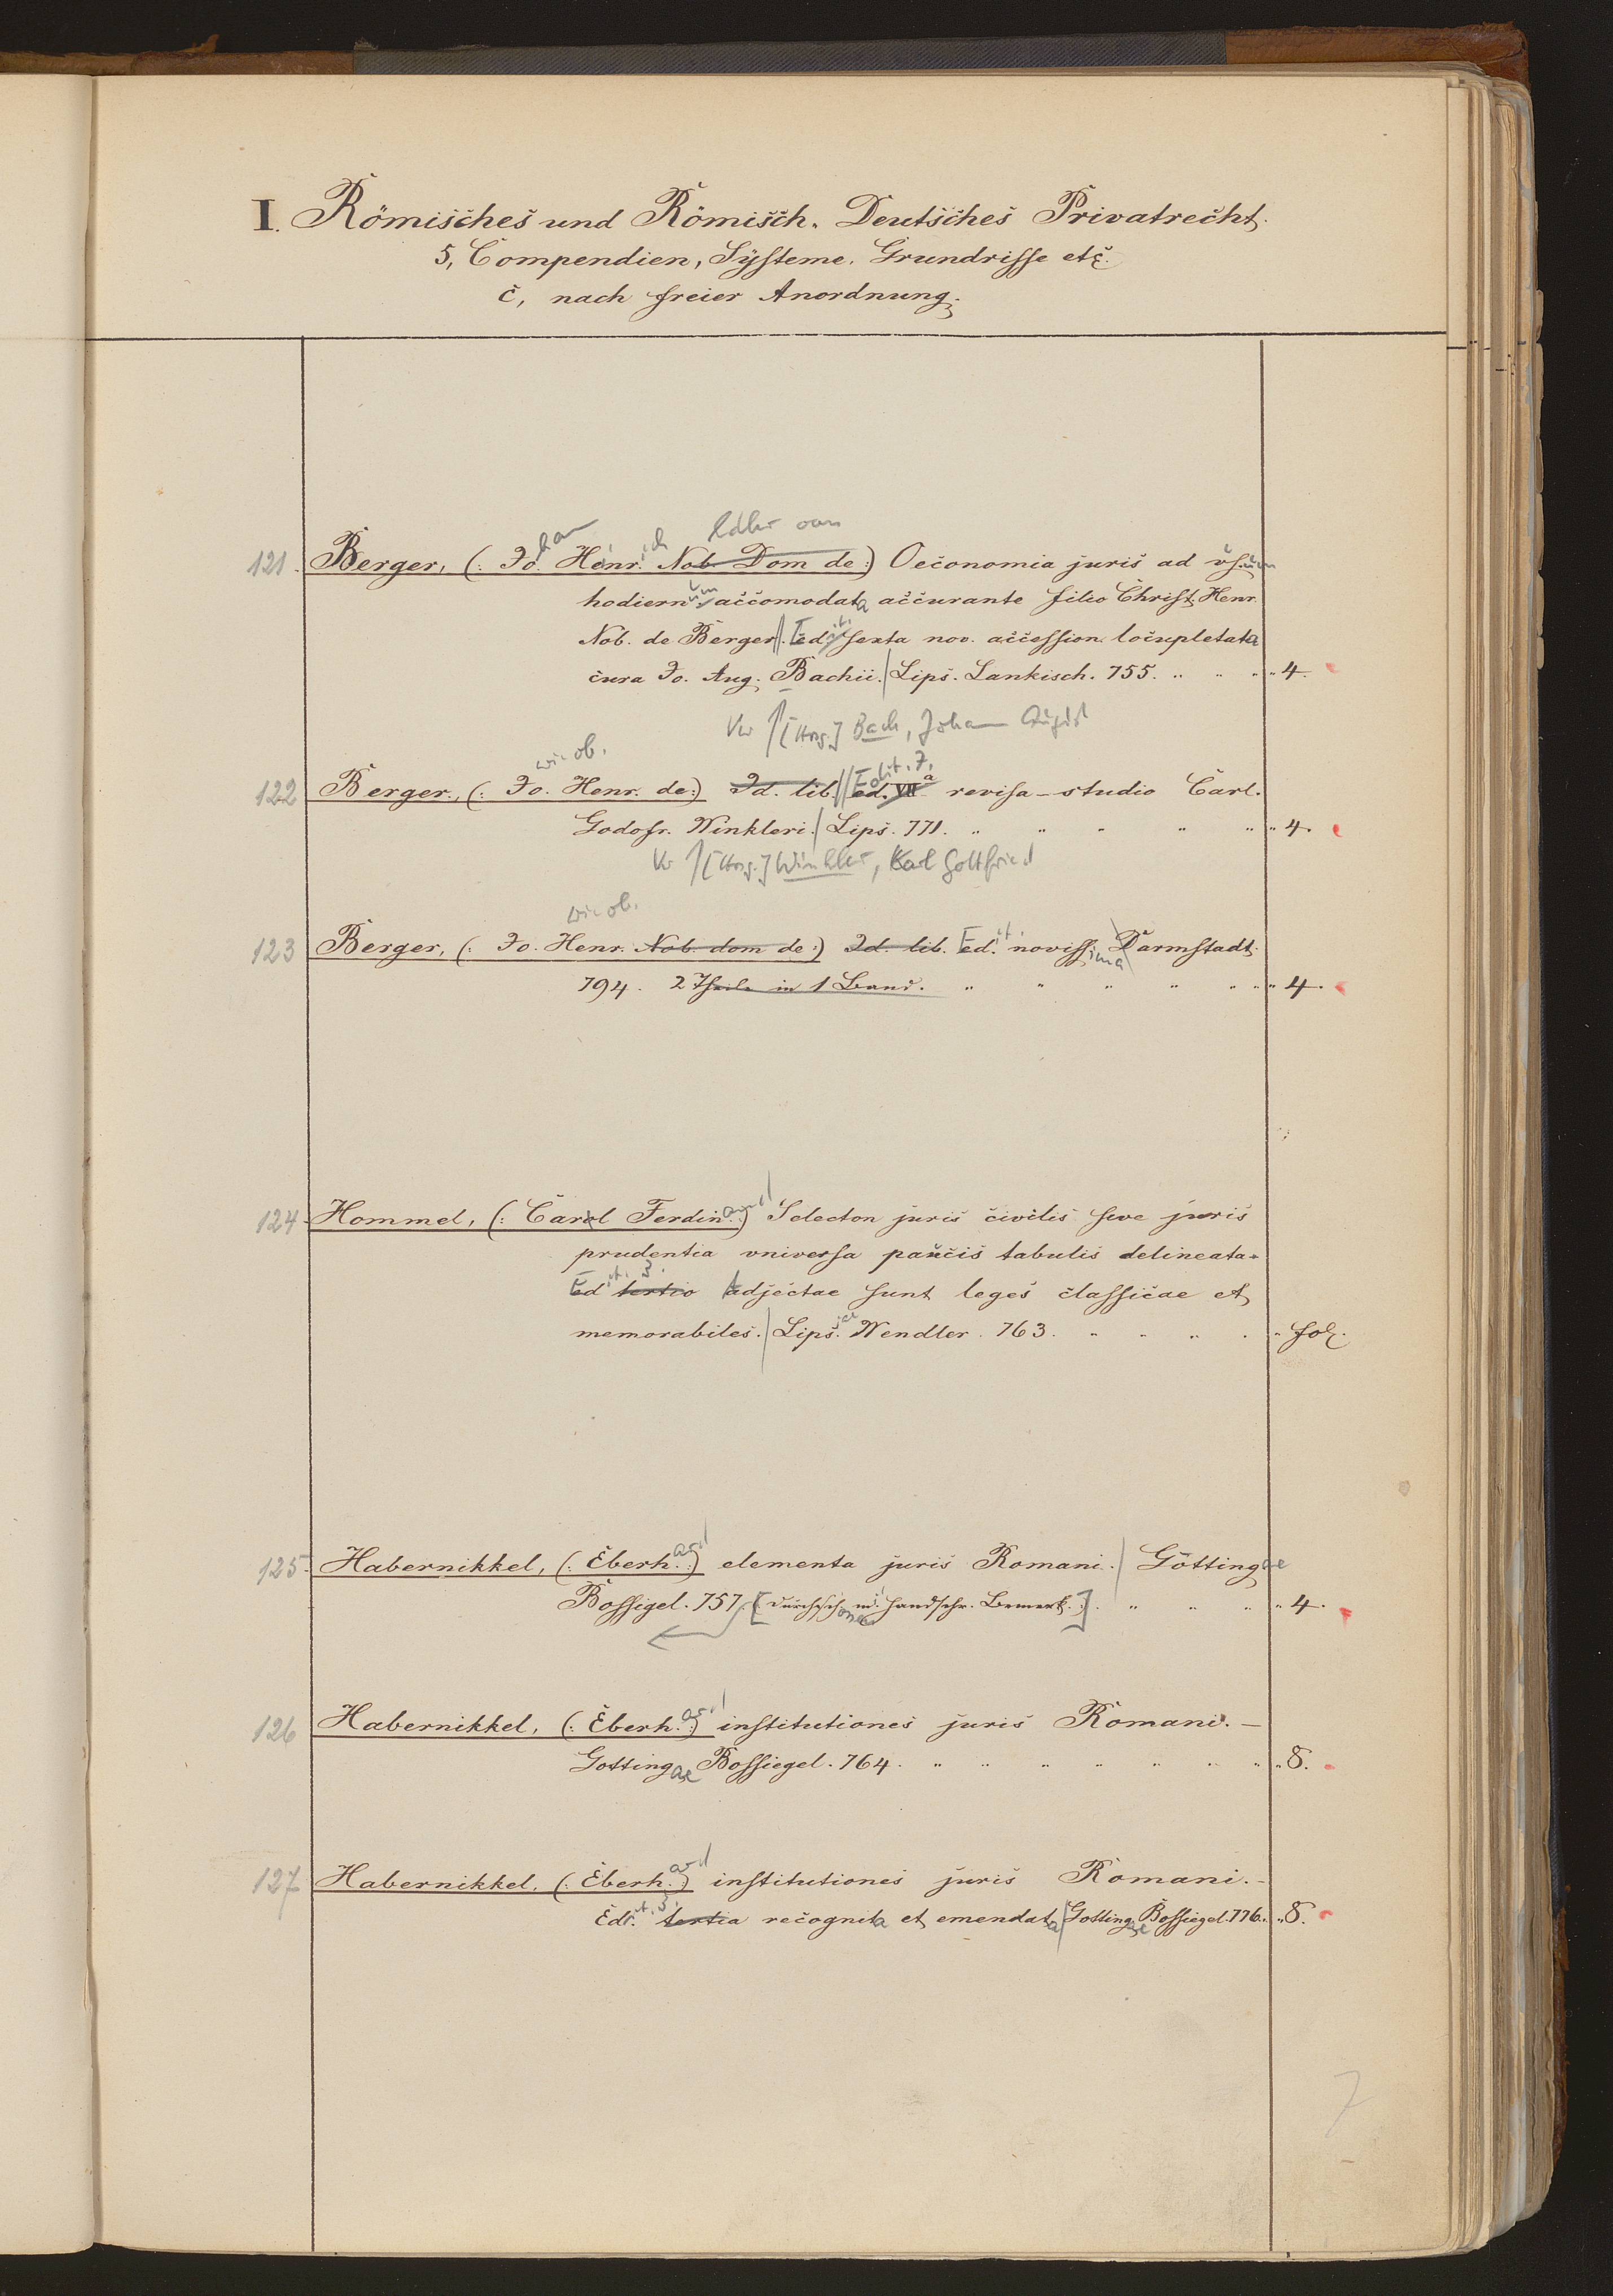 I. Römisches und Römisch. Deutsches Privatrecht.
5, Compendien, Systeme, Grundrisse etc.
c, nach freier Anordnung.
han ich Edler von
121. Berger, (: Jo. Henr. Nob. Dom de:) Oeconomia juris ad usum
hodiernum accomodata accurante filio Christ. Henr.
Nob. de Berger. Edit. sexta nov. accession. locupletata
cura Jo. Aug. Bachii. Lips. Lankisch. 755. 4.
Vw [Hrsg.] Bach, Johann August
wie ob. Edit. 7.
122 Berger, (: Jo. Henr. de:) Id. lib. ed. VIIa revisa - studio Carl.
Godofr. Winkleri. Lips. 771. 4.
Vw [Hrsg.] Winkler, Karl Gottfried
wie ob.
123 Berger, (: Jo. Henr. Nob. dom de:) Id. lib. Edit. novissima Darmstadt.
794. 2 Theile in 1 Band. 4.
124. Hommel, (: Carol Ferdinand:) Selecton juris civilis sive juris
prudentia universa paucis tabulis delineata.
Edit. 3. tertio adjectae sunt leges classicae et
memorabiles. Lipsiae Wendler. 763. fol.
125. Habernikkel, (: Eberhard:) elementa juris Romani. Göttingae
Bossigel. 757. [durchsch. m. handschr. Bemerk.] 4.
126 Habernikkel, (: Eberhard:) institutiones juris Romani. –
Gottingae Bossiegel. 764. 8.
127 Habernikkel, (: Eberhard:) institutiones juris Romani. –
Edit. 3. tertia recognita et emendata Gottingae Bossiegel. 776. 8.
7